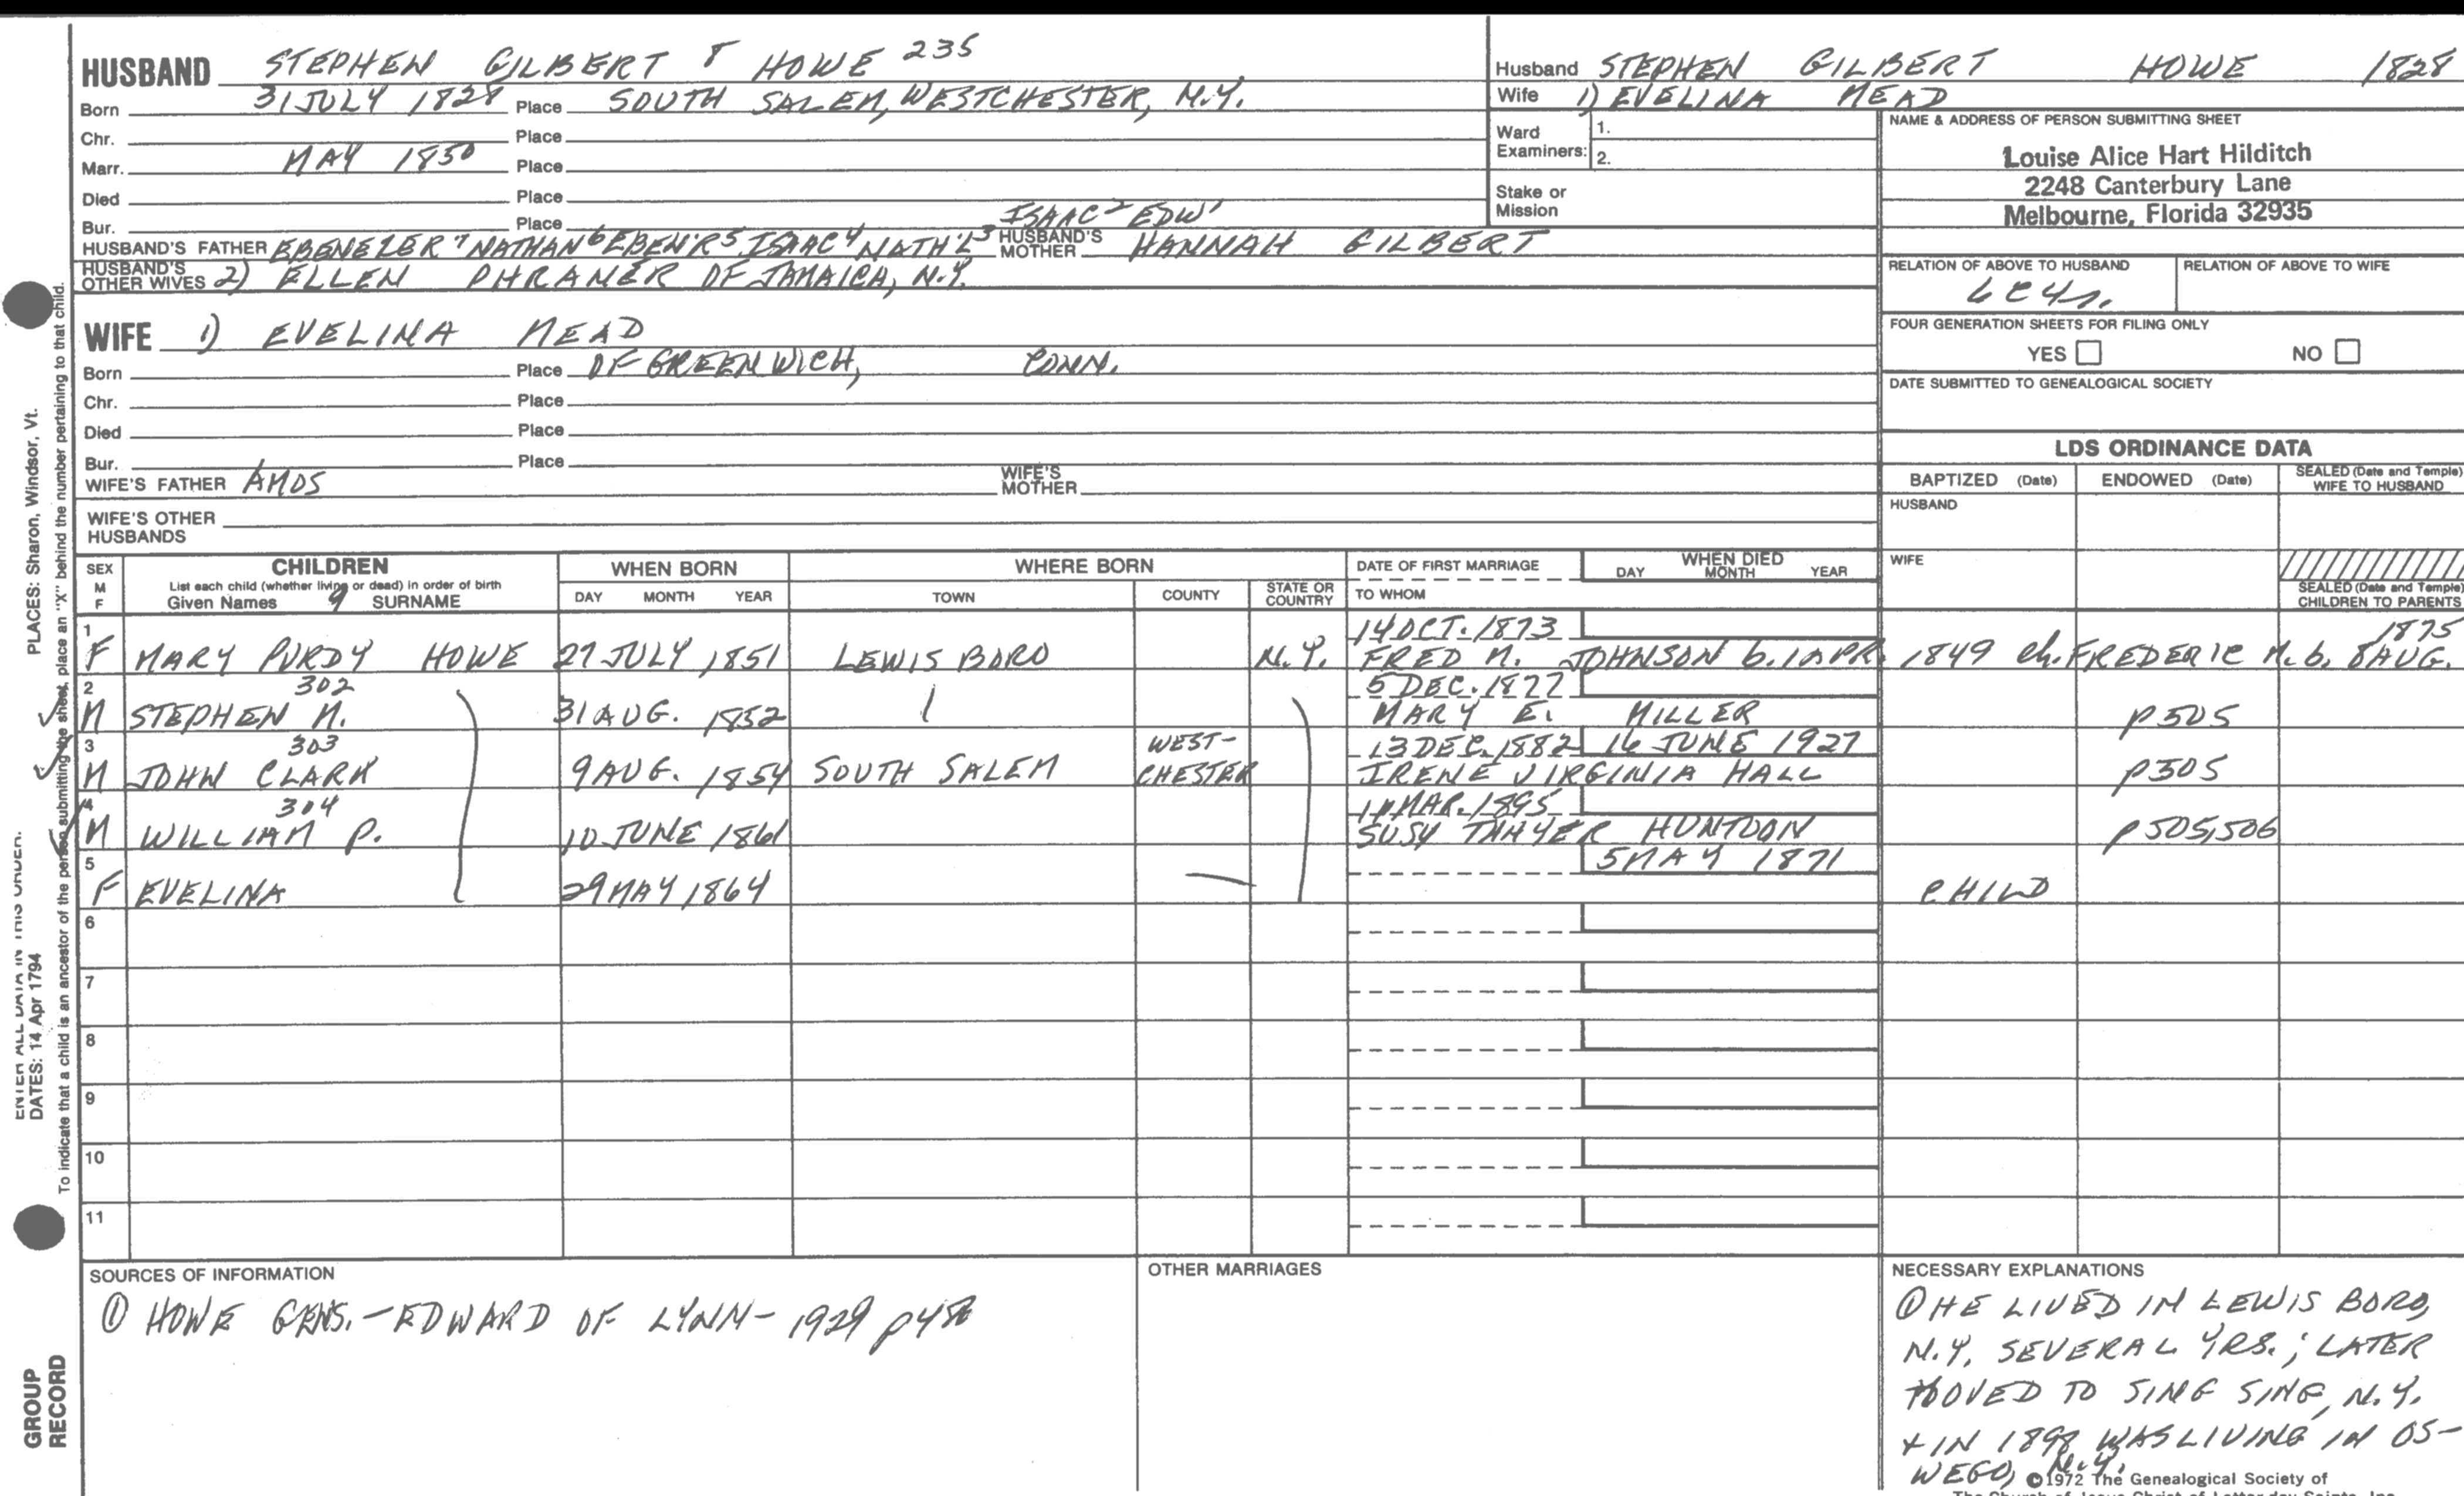 HUSBAND STEPHEN GILBERT 8 HOWE 235
Born 31 JULY 1828 Place SOUTH SALEM, WESTCHESTER, N.Y.
Chr. Place
Marr. MAY 1850 Place
Died Place
Bur. Place ISAAC 2 EDW 1
HUSBAND'S FATHER EBENEZER 7 NATHAN 6 EBEN'R 5 ISAAC 4 NATH'L 3 HUSBAND'S MOTHER HANNAH GILBERT
HUSBAND'S OTHER WIVES 2) ELLEN PHRANER OF JAMAICA, N.Y.
WIFE 1) EVELINA MEAD
Born Place OF GREENWICH, CONN.
Chr. Place
Died Place
Bur. Place
WIFE'S FATHER AMOS WIFE'S MOTHER
WIFE'S OTHER HUSBANDS
Husband STEPHEN GILBERT HOWE 1828
Wife 1) EVELINA MEAD
Ward Examiners: 1.
2.
Stake or Mission
NAME & ADDRESS OF PERSON SUBMITTING SHEET
Louise Alice Hart Hilditch
2248 Canterbury Lane
Melbourne, Florida 32935
RELATION OF ABOVE TO HUSBAND RELATION OF ABOVE TO WIFE
FOUR GENERATION SHEETS FOR FILING ONLY
YES NO
DATE SUBMITTED TO GENEALOGICAL SOCIETY
LDS ORDINANCE DATA
BAPTIZED (Date) ENDOWED (Date) SEALED (Date and Temple) WIFE TO HUSBAND
HUSBAND
WIFE
SEALED (Date and Temple) CHILDREN TO PARENTS
SEX M F CHILDREN List each child (whether living or dead) in order of birth Given Names 9 SURNAME
WHEN BORN DAY MONTH YEAR
WHERE BORN TOWN COUNTY STATE OR COUNTRY
DATE OF FIRST MARRIAGE TO WHOM
WHEN DIED DAY MONTH YEAR
1 14 OCT. 1873 1875
F MARY PURDY HOWE 27 JULY 1851 LEWIS BORO N.Y. FRED M. JOHNSON b. 1 APR. 1849 ch. FREDERIC M. b. 8 AUG.
2 302 5 DEC. 1877
M STEPHEN M. 31 AUG. 1852 MARY E. MILLER p505
3 303 WEST- 13 DEC. 1882 16 JUNE 1927
M JOHN CLARK 9 AUG. 1854 SOUTH SALEM CHESTER IRENE VIRGINIA HALL p505
4 304 MAR. 1895
M WILLIAM P. 10 JUNE 1861 SUSY THAYER HUNTOON p505,506
5 5 MAY 1871
F EVELINA 29 MAY 1864 CHILD
6
7
8
9
10
11
SOURCES OF INFORMATION
① HOWE GENS. - EDWARD OF LYNN - 1929
OTHER MARRIAGES
NECESSARY EXPLANATIONS
① HE LIVED IN LEWIS BORO,
N.Y. SEVERAL YRS.; LATER
MOVED TO SING SING, N.Y.
+ IN 1898 WAS LIVING IN OS-
WEGO, N.Y.
©1972 The Genealogical Society of
The Church of Jesus Christ of Latter-day Saints, Inc.
PLACES: Sharon, Windsor, Vt.
ENTER ALL DATA IN THIS ORDER:
DATES: 14 Apr 1794
To indicate that a child is an ancestor of the person submitting the sheet, place an "X" behind the number pertaining to that child.
GROUP
RECORD